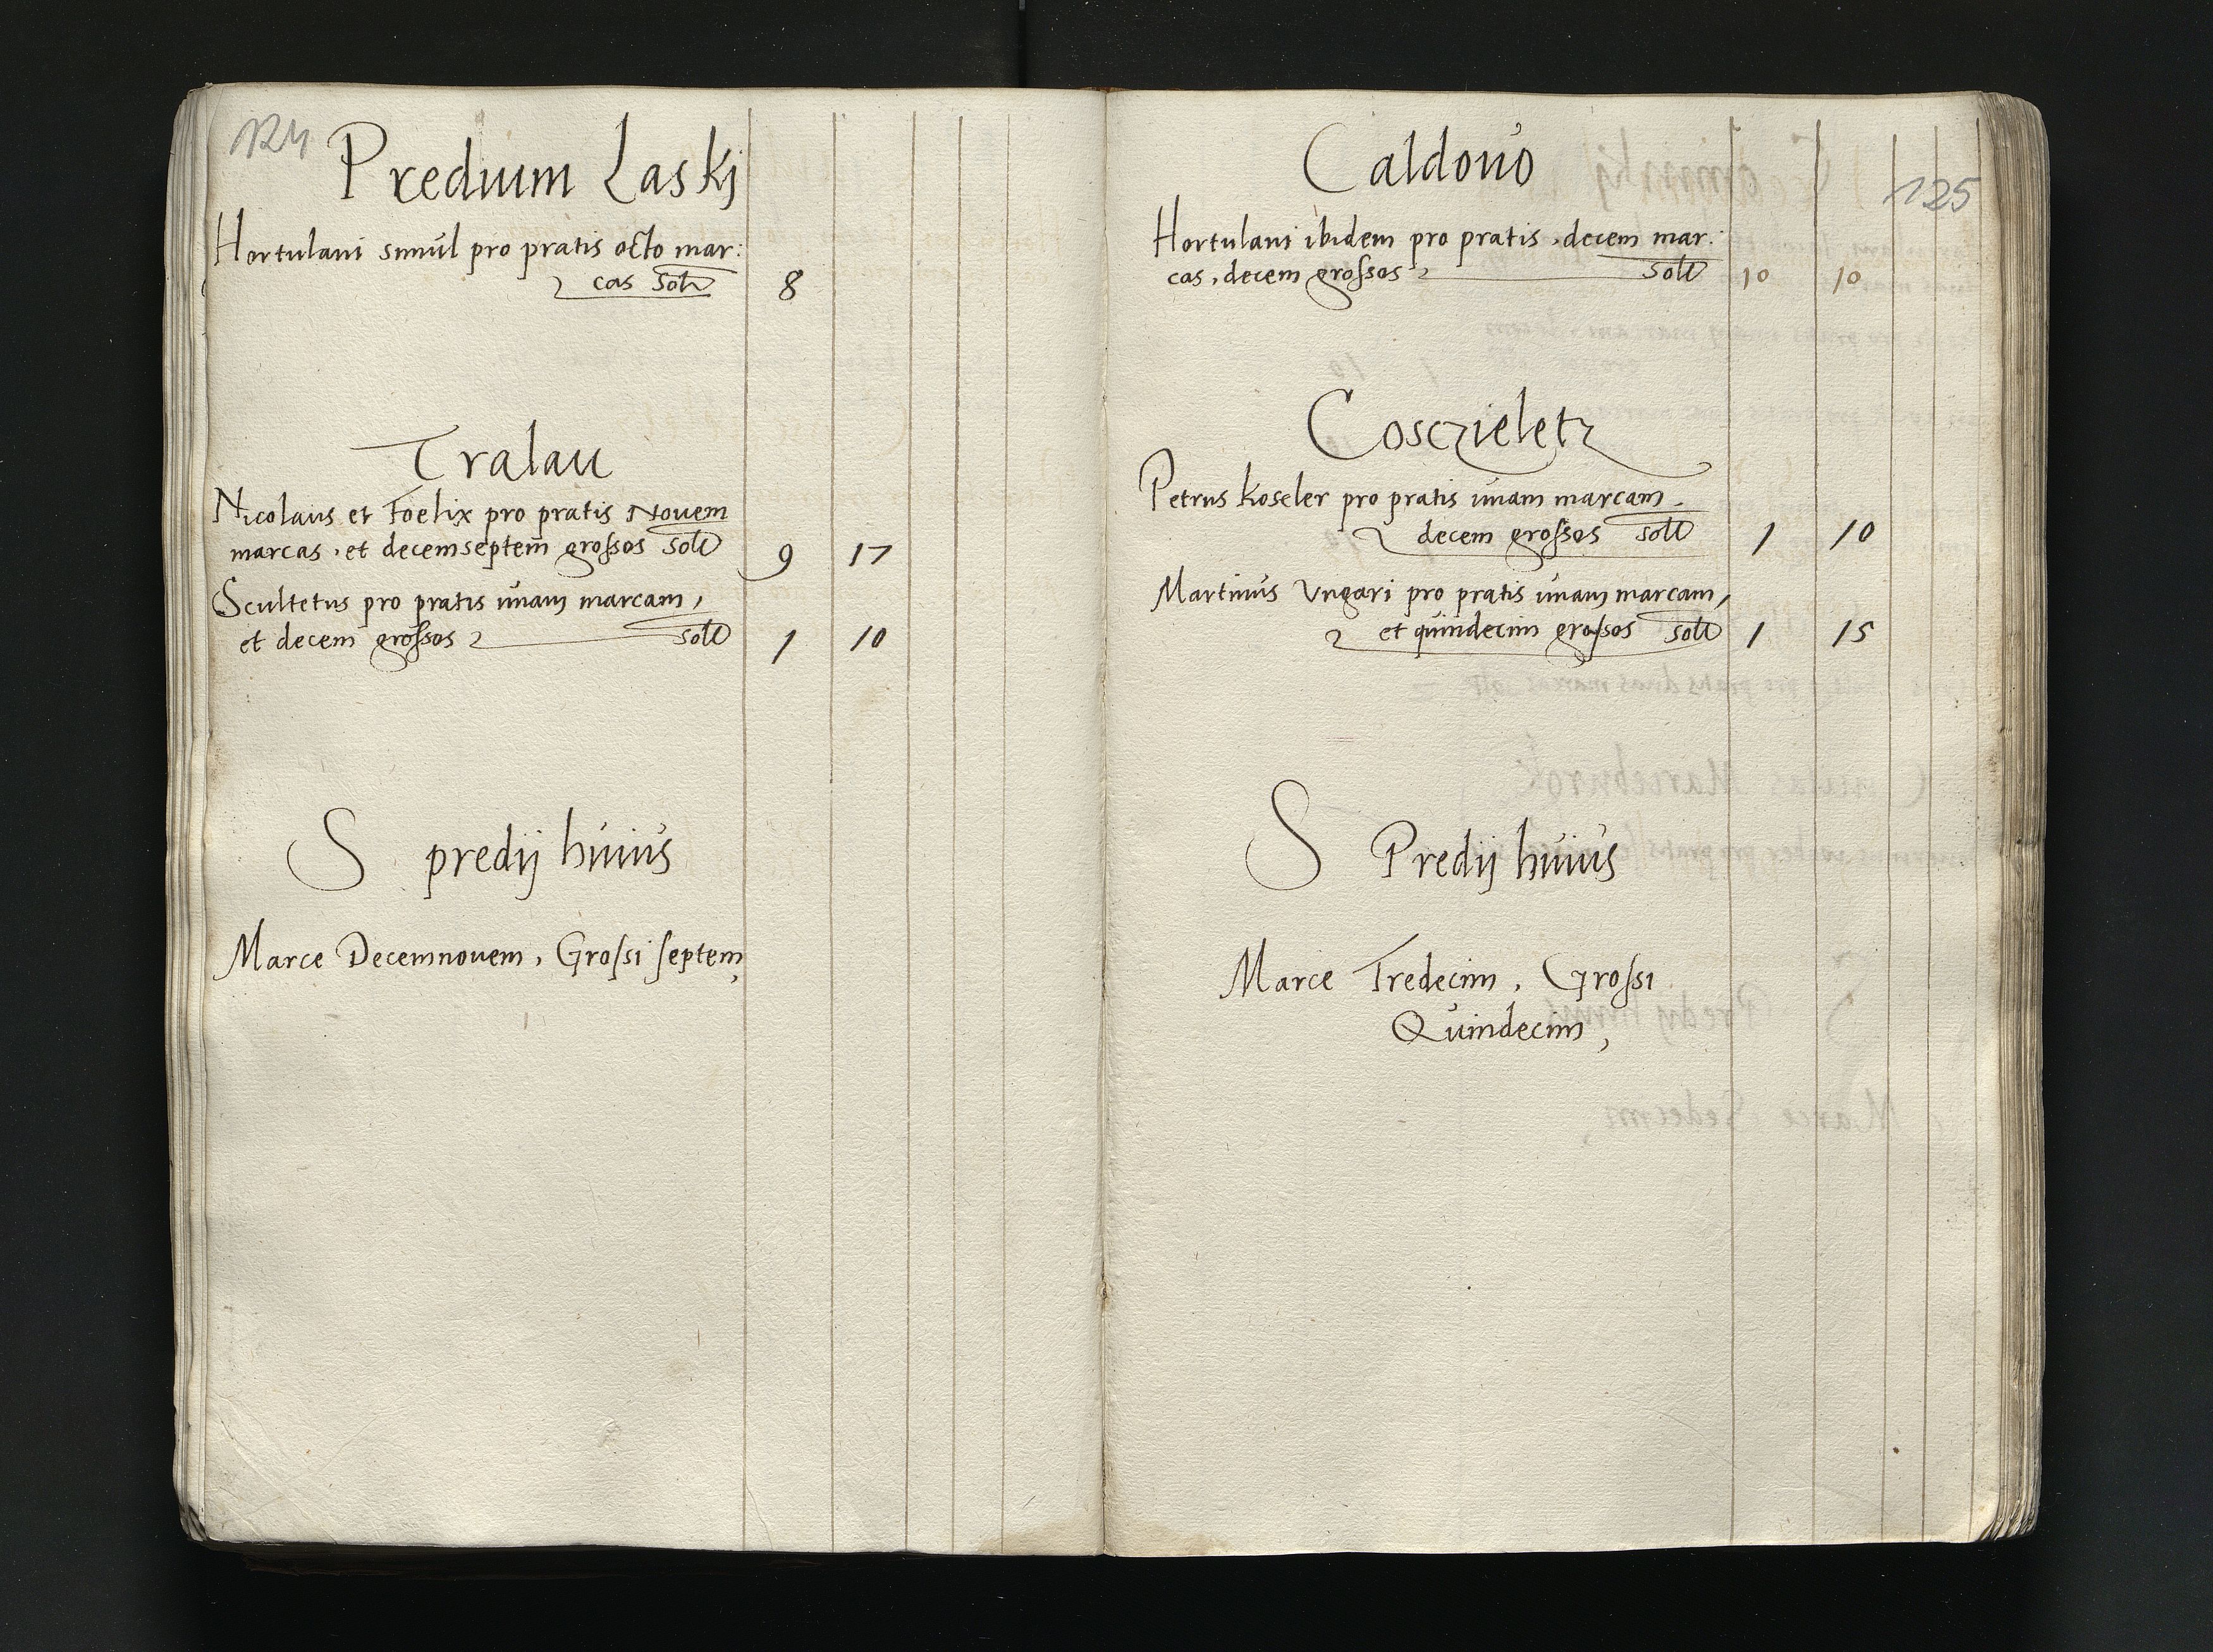 124
Predium Laskj
Hortulani simul pro pratis octo mar:
cas solt 8
Tralau
Nicolaus et Foelix pro pratis Nouem
marcas, et decemseptem grossos solt 9 17
Scultetus pro pratis unam marcam,
et decem grossos solt 1 10
S predij huius
Marce Decemnouem, Grossi septem,
125
Caldouo
Hortulani ibidem pro pratis, decem mar:
cas, decem grossos solt 10 10
Cosczieletz
Petrus Koseler pro pratis unam marcam.
decem grossos solt 1 10
Martinus Ungari pro pratis unam marcam,
et quindecim grossos solt 1 15
S Predij huius
Marce Tredecim, Grossi
Quindecim,